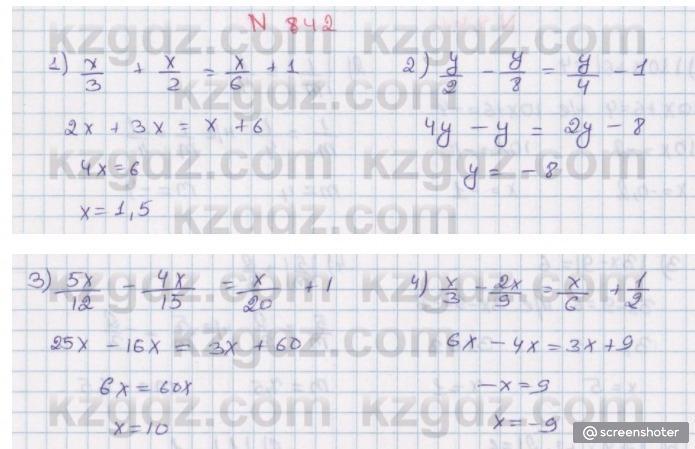 N 842
1) x/3 + x/2 = x/6 + 1
2x + 3x = x + 6
4x = 6
x = 1,5
2) y/2 - y/8 = y/4 - 1
4y - y = 2y - 8
y = -8
3) 5x/12 - 4x/15 = x/20 + 1
25x - 16x = 3x + 60
6x = 60x
x = 10
4) x/3 - 2x/9 = x/6 + 1/2
6x - 4x = 3x + 9
-x = 9
x = -9
kzgdz.com kzgdz.com
kzgdz.com kzgdz.com
kzgdz.com kzgdz.com
kzgdz.com kzgdz.com
kzgdz.com kzgdz.com
kzgdz.com
@ screenshoter